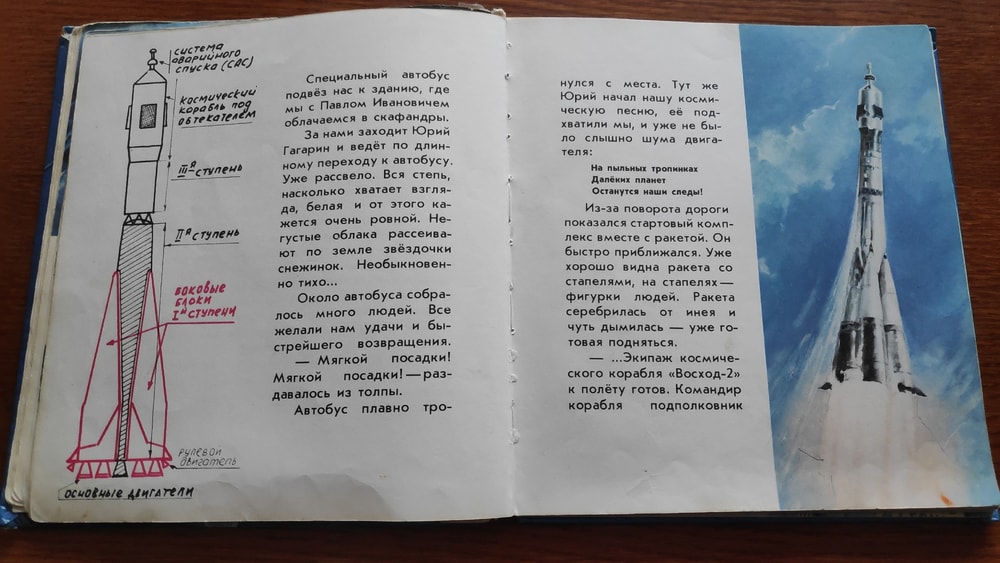 система
аварийного
спуска (САС)
космический
корабль под
обтекателем
IIIᴬ ступень
IIᴬ ступень
боковые
блоки
Iᴬ ступени
рулевой
двигатель
основные двигатели
Специальный автобус
подвёз нас к зданию, где
мы с Павлом Ивановичем
облачаемся в скафандры.
За нами заходит Юрий
Гагарин и ведёт по длин-
ному переходу к автобусу.
Уже рассвело. Вся степь,
насколько хватает взгля-
да, белая и от этого ка-
жется очень ровной. Не-
густые облака рассеива-
ют по земле звёздочки
снежинок. Необыкновен-
но тихо...
Около автобуса собра-
лось много людей. Все
желали нам удачи и бы-
стрейшего возвращения.
— Мягкой посадки!
Мягкой посадки! — раз-
давалось из толпы.
Автобус плавно тро-
нулся с места. Тут же
Юрий начал нашу косми-
ческую песню, её под-
хватили мы, и уже не бы-
ло слышно шума двига-
теля:
На пыльных тропинках
Далёких планет
Останутся наши следы!
Из-за поворота дороги
показался стартовый комп-
лекс вместе с ракетой. Он
быстро приближался. Уже
хорошо видна ракета со
стапелями, на стапелях —
фигурки людей. Ракета
серебрилась от инея и
чуть дымилась — уже го-
товая подняться.
— ...Экипаж космиче-
ского корабля «Восход-2»
к полёту готов. Командир
корабля подполковник